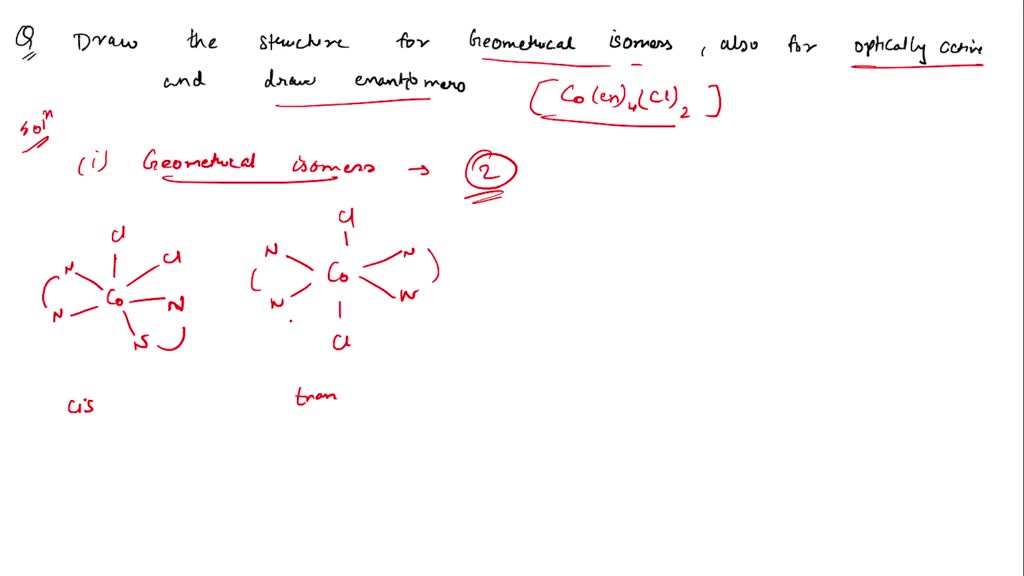 Q Draw the structure for Geometrical isomers, also for optically active
and draw enantiomers [Co(en)4(Cl)2]
Solⁿ
(i) Geometrical isomers → 2
Cl
Cl
N
Co
N
N
N
Cl
N
N
Co
N
N
Cl
cis
tran